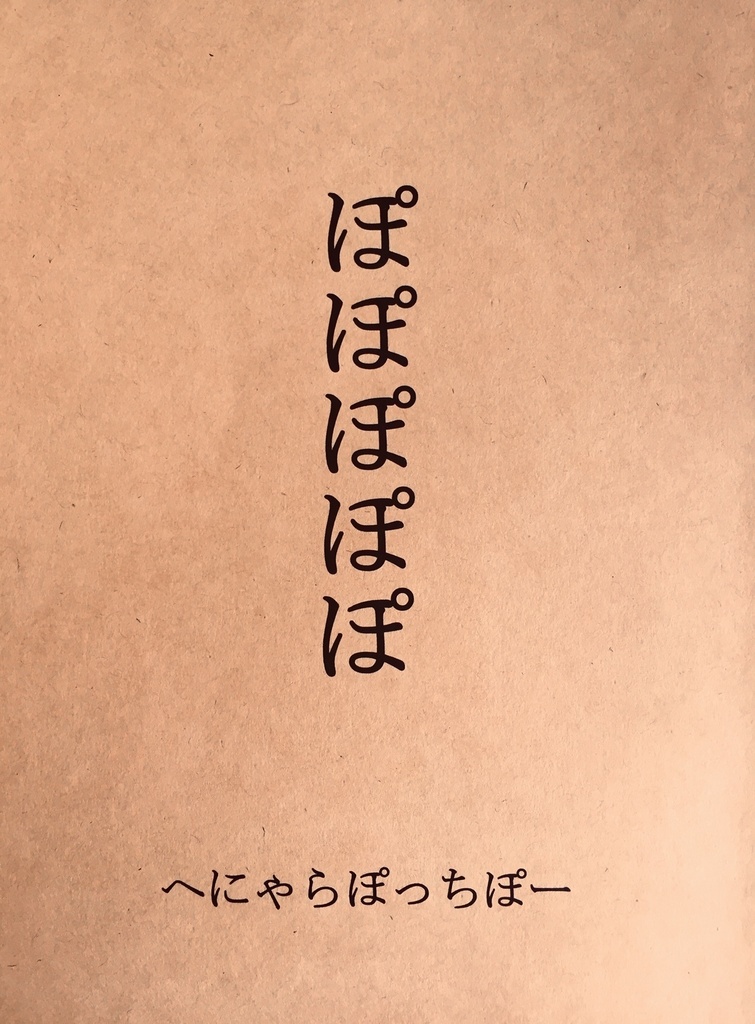 ぽぽぽぽぽ
へにゃらぽっちぽー